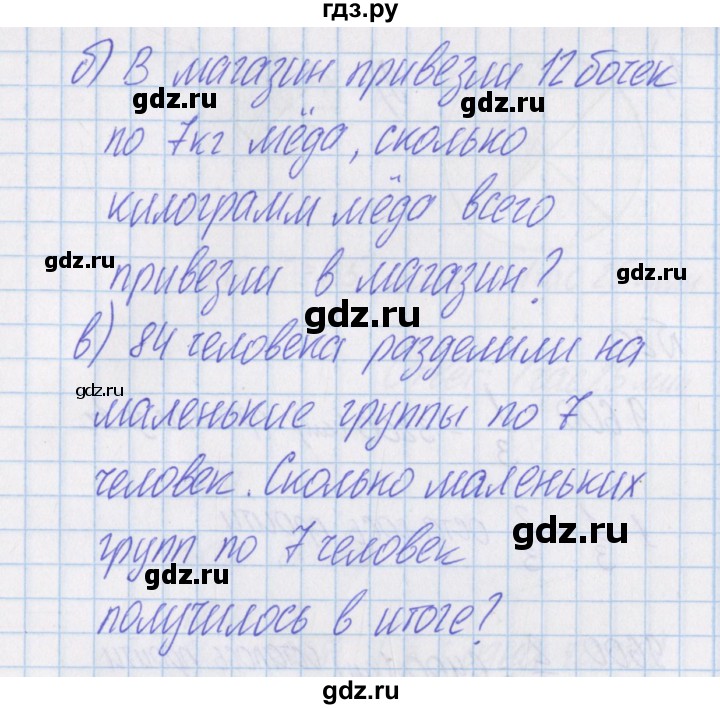 гдз.ру
б) В магазин привезли 12 бочек
gdz.ru gdz.ru
по 7кг мёда, сколько
килограмм мёда всего
gdz.ru gdz.ru
привезли в магазин?
gdz.ru
в) 84 человека разделили на
gdz.ru
маленькие группы по 7
человек. Сколько маленьких
gdz.ru
групп по 7 человек
gdz.ru
получилось в итоге?
gdz.ru